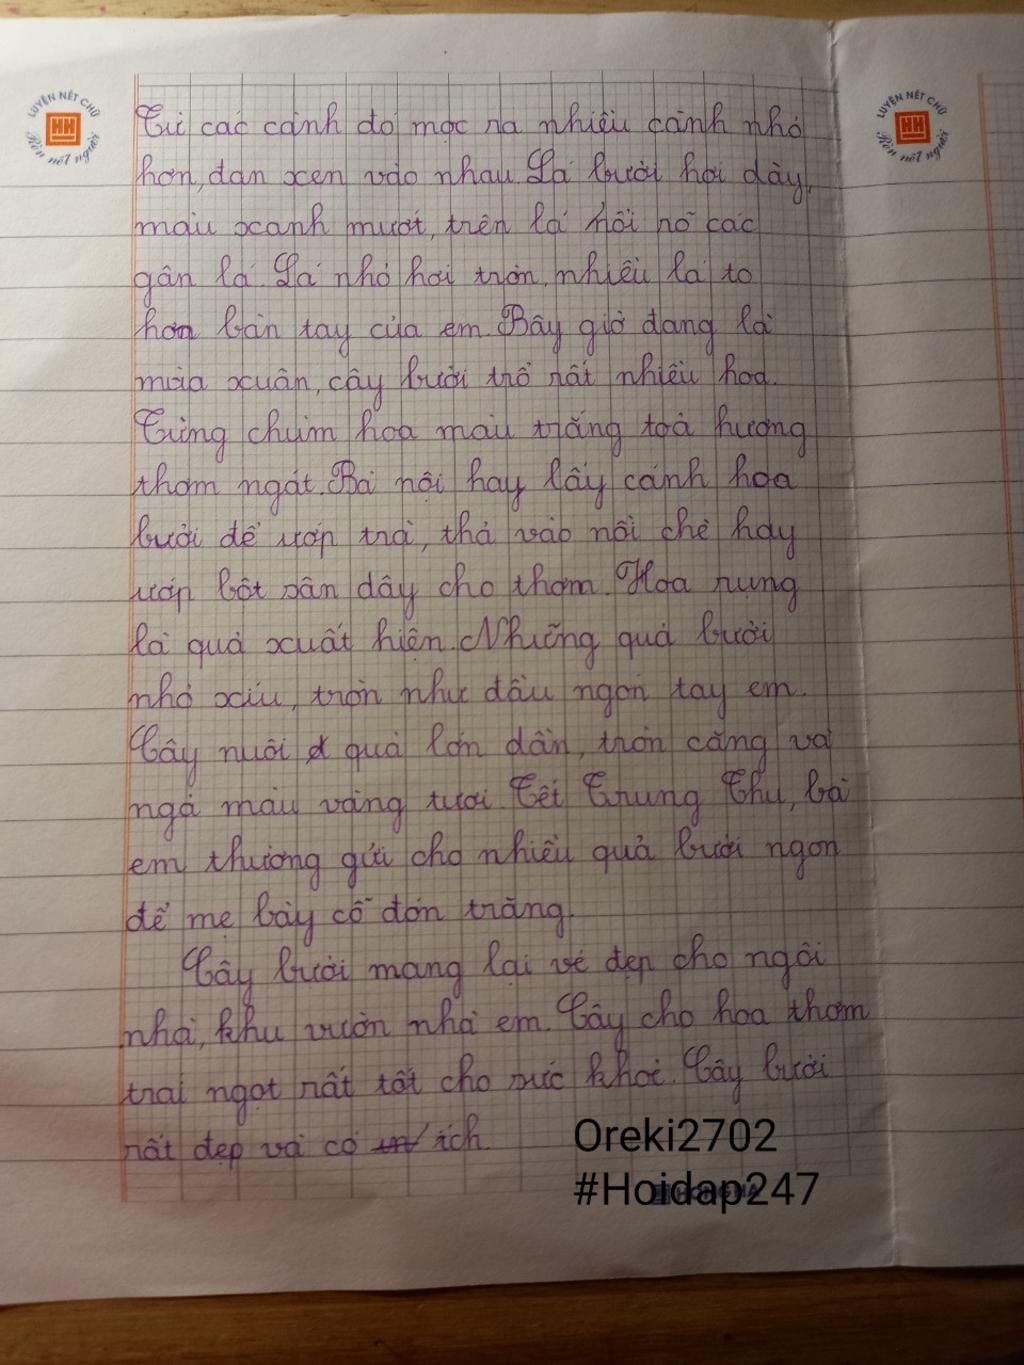 LUYỆN NÉT CHỮ
HH
Rèn nết người
LUYỆN NÉT CHỮ
HH
Rèn nết người
Từ các cành đó mọc ra nhiều cành nhỏ
hơn, đan xen vào nhau. Lá bưởi hơi dày,
màu xanh mướt, trên lá nổi rõ các
gân lá. Lá nhỏ hơi tròn, nhiều lá to
hơn bàn tay của em. Bây giờ đang là
mùa xuân, cây bưởi trổ rất nhiều hoa.
Từng chùm hoa màu trắng toả hương
thơm ngát. Bà nội hay lấy cánh hoa
bưởi để ướp trà, thả vào nồi chè hay
ướp bột sắn dây cho thơm. Hoa rụng
là quả xuất hiện. Những quả bưởi
nhỏ xíu, tròn như đầu ngón tay em.
Cây nuôi quả lớn dần, tròn căng và
ngả màu vàng tươi. Tết Trung Thu, bà
em thường gửi cho nhiều quả bưởi ngon
để mẹ bày cỗ đón trăng.
Cây bưởi mang lại vẻ đẹp cho ngôi
nhà, khu vườn nhà em. Cây cho hoa thơm
trái ngọt rất tốt cho sức khoẻ. Cây bưởi
rất đẹp và có ích.
Oreki2702
#Hoidap247